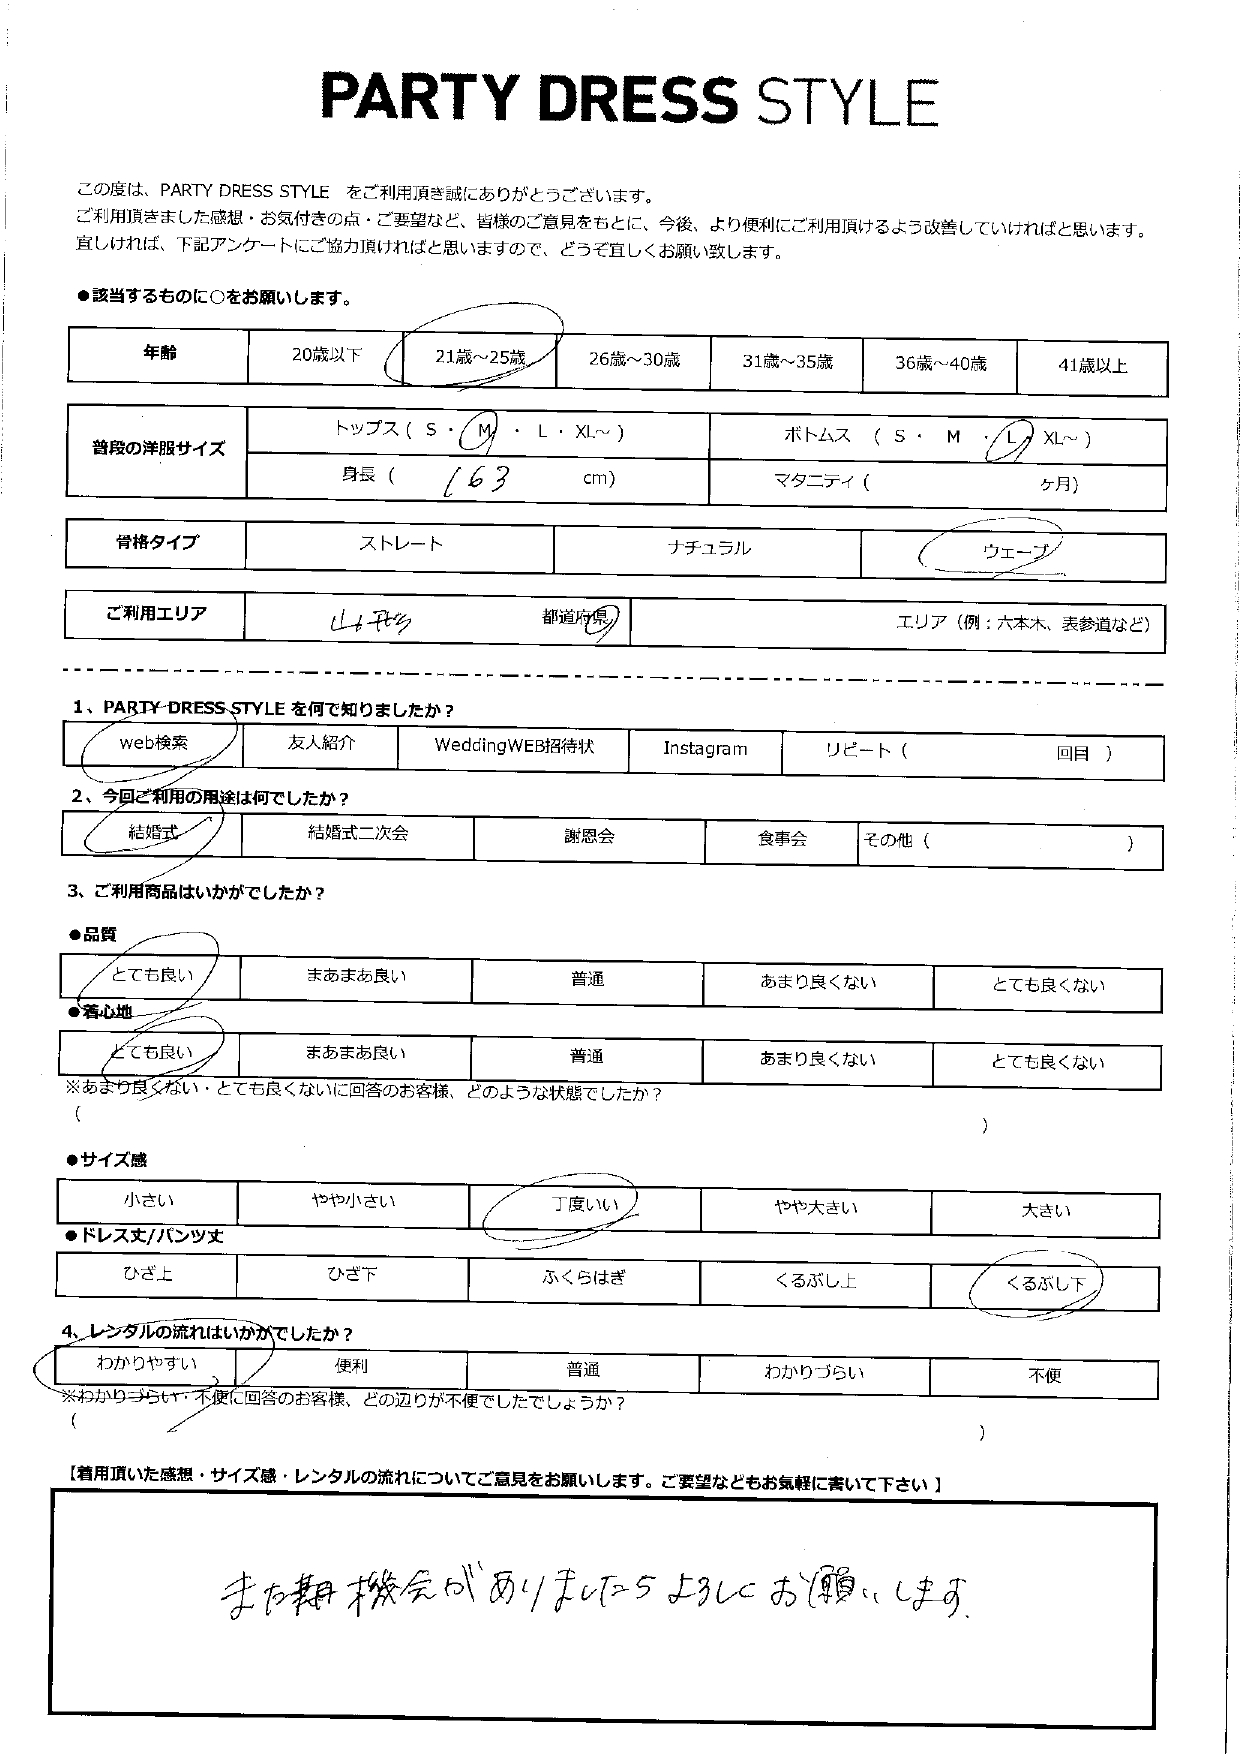 PARTY DRESS STYLE
この度は、PARTY DRESS STYLE をご利用頂き誠にありがとうございます。
ご利用頂きました感想・お気付きの点・ご要望など、皆様のご意見をもとに、今後、より便利にご利用頂けるよう改善していければと思います。
宜しければ、下記アンケートにご協力頂ければと思いますので、どうぞ宜しくお願い致します。
●該当するものに○をお願いします。
年齢 20歳以下 21歳～25歳 26歳～30歳 31歳～35歳 36歳～40歳 41歳以上
普段の洋服サイズ トップス ( S ・ M ・ L ・ XL～ ) ボトムス ( S ・ M ・ L ・ XL～ )
身長 ( 163 cm) マタニティ ( ヶ月)
骨格タイプ ストレート ナチュラル ウェーブ
ご利用エリア 山形 都道府県 エリア（例：六本木、表参道など）
1、PARTY DRESS STYLE を何で知りましたか？
web検索 友人紹介 WeddingWEB招待状 Instagram リピート ( 回目 )
2、今回ご利用の用途は何でしたか？
結婚式 結婚式二次会 謝恩会 食事会 その他 ( )
3、ご利用商品はいかがでしたか？
●品質
とても良い まあまあ良い 普通 あまり良くない とても良くない
●着心地
とても良い まあまあ良い 普通 あまり良くない とても良くない
※あまり良くない・とても良くないに回答のお客様、どのような状態でしたか？
( )
●サイズ感
小さい やや小さい 丁度いい やや大きい 大きい
●ドレス丈/パンツ丈
ひざ上 ひざ下 ふくらはぎ くるぶし上 くるぶし下
4、レンタルの流れはいかがでしたか？
わかりやすい 便利 普通 わかりづらい 不便
※わかりづらい・不便に回答のお客様、どの辺りが不便でしたでしょうか？
( )
【着用頂いた感想・サイズ感・レンタルの流れについてご意見をお願いします。ご要望などもお気軽に書いて下さい 】
また 機会がありましたらよろしくお願いします.